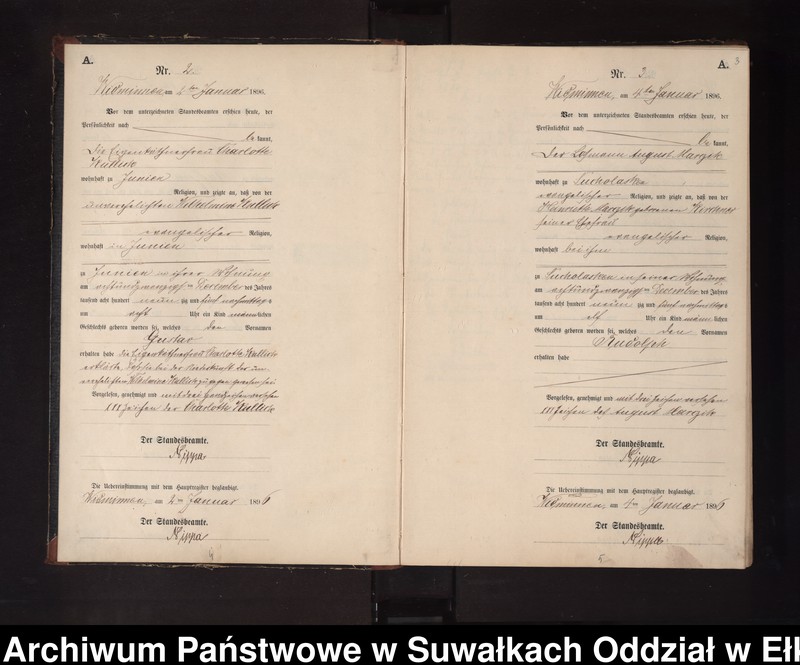 A.
Nr. 2
Widminnen, am 2ten Januar 1896.
Vor dem unterzeichneten Standesbeamten erschien heute, der
Persönlichkeit nach
be kannt,
die Eigenkäthnerfrau Charlotte
wohnhaft zu Junien
Religion, und zeigte an, daß von der
unverehelichten Wilhelmine
evangelischer Religion,
wohnhaft in Junien
zu Junien in ihrer Wohnung
am achtundzwanzigsten Dezember des Jahres
tausend acht hundert neun zig und fünf nachmittags
um acht Uhr ein Kind männ lichen
Geschlechts geboren worden sei, welches den Vornamen
Gustav
erhalten habe die Eigenkäthnerfrau Charlotte
erklärte, daß sie bei der Niederkunft der un-
verehelichten Wilhelmine zugegen gewesen sei
Vorgelesen, genehmigt und mit drei Handzeichen versehen
††† Zeichen der Charlotte
Der Standesbeamte.
Nippa
Die Uebereinstimmung mit dem Hauptregister beglaubigt.
Widminnen, am 2ten Januar 1896
Der Standesbeamte.
Nippa
3
A.
Nr. 3
Widminnen, am 4ten Januar 1896.
Vor dem unterzeichneten Standesbeamten erschien heute, der
Persönlichkeit nach
be kannt,
der Losmann August
wohnhaft zu Sucholasken
evangelischer Religion, und zeigte an, daß von der
Henriette geborenen
seiner Ehefrau
evangelischer Religion,
wohnhaft bei ihm
zu Sucholasken in seiner Wohnung
am achtundzwanzigsten Dezember des Jahres
tausend acht hundert neun zig und fünf nachmittags
um elf Uhr ein Kind männ lichen
Geschlechts geboren worden sei, welches den Vornamen
Rudolph
erhalten habe
Vorgelesen, genehmigt und mit drei Zeichen versehen
††† Zeichen des August
Der Standesbeamte.
Nippa
Die Uebereinstimmung mit dem Hauptregister beglaubigt.
Widminnen, am 4ten Januar 1896
Der Standesbeamte.
Nippa
Archiwum Państwowe w Suwałkach Oddział w Ełk